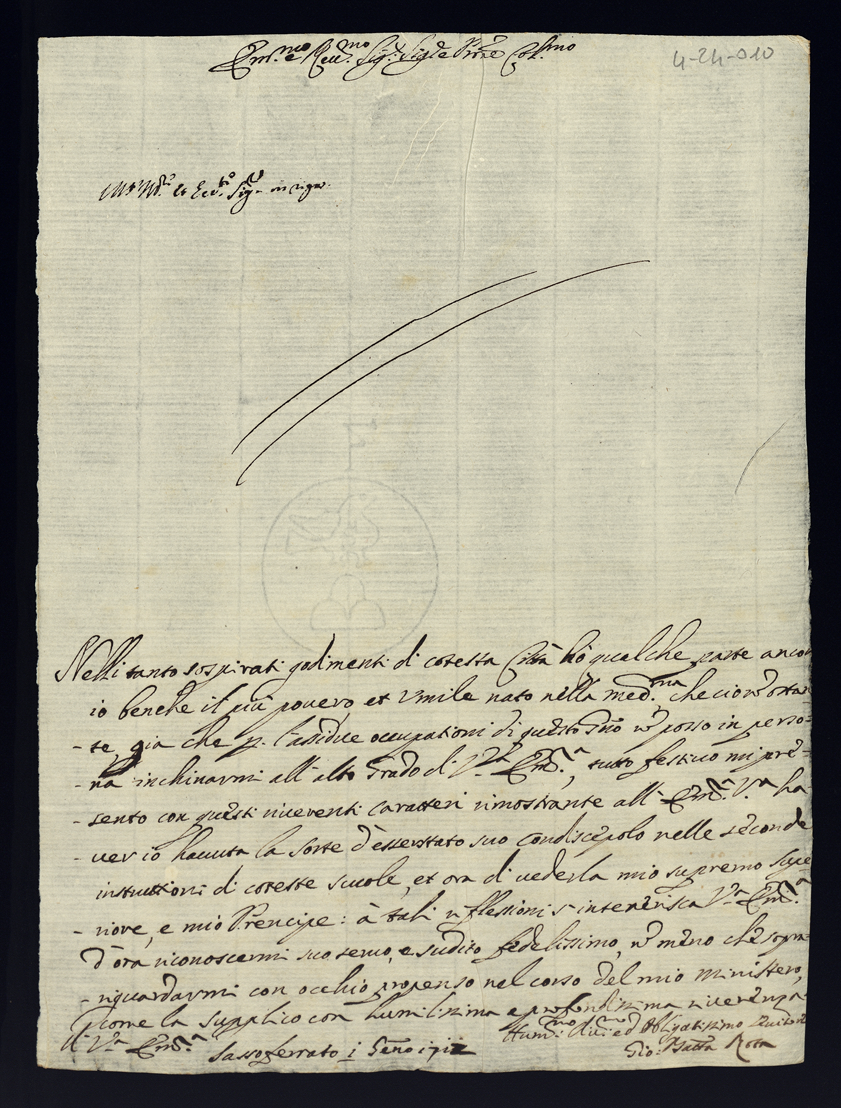 Em.mo e Rev.mo Sig.r Sig.re P.rone Col.mo
4-24-010
Nelli tanto sospirati godimenti di cotesta Città hò qualche parte ancor
io benche il più povero et umile nato nella med.ma che
te, gia che p. l'assidue occupationi di questo posso in perso=
=na inchinarmi all'alto Grado di V.ra Em.a, tutto festivo mi pre=
=sento con questi riverenti caratteri rimostrante all'Em.a V.ra ha
=ver io havuta la sorte d'esser stato suo condiscepolo nelle seconde
instruttioni di coteste scuole, et ora di vederla mio supremo Supe
=riore, e mio Prencipe: à tali riflessioni s'intenerisca V.ra Em.a
d'ora riconoscermi suo servo, e sudito fedelissimo, meno che sopra=
=riguardarmi con occhio propenso nel corso del mio ministero,
come la supplico con humilissima e profondissima riverenza
di V.ra Em.a
Sassoferrato
Hum.mo Div.mo ed Obligatissimo Servitore
Gio: Batta Rota